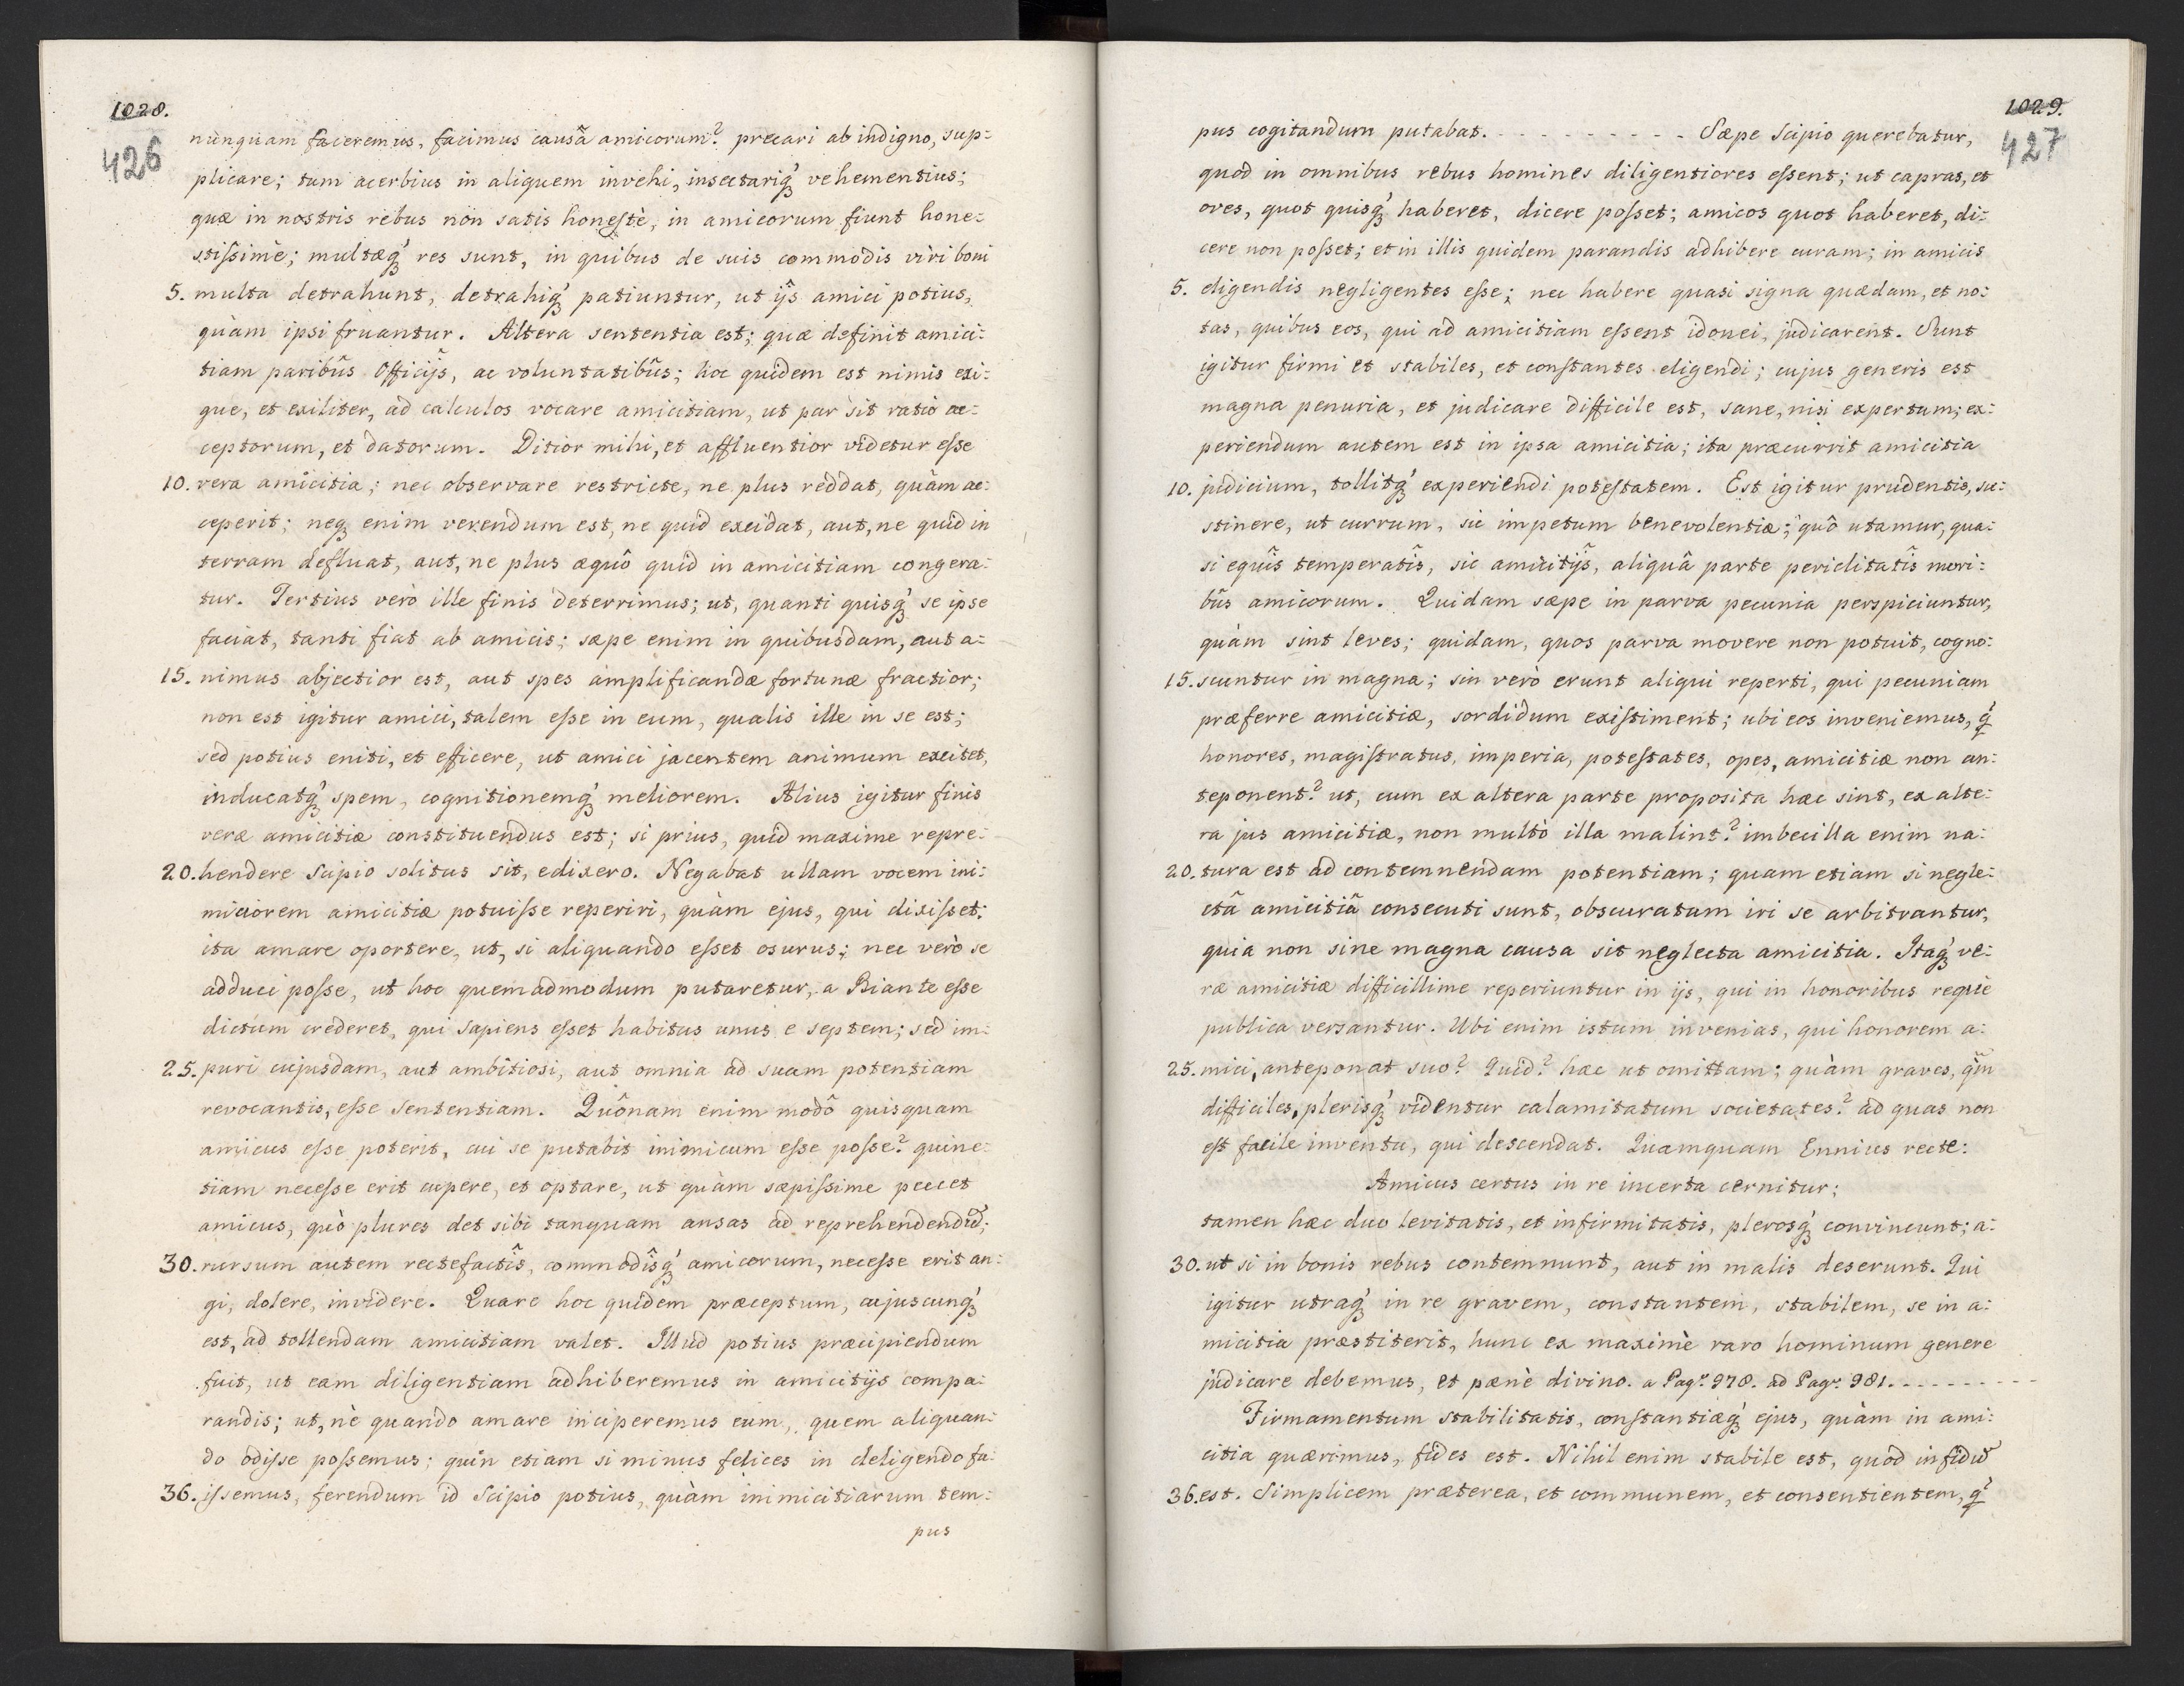 1028.
426
nunquam faceremus, facimus causâ amicorum? precari ab indigno, sup=
plicare; tum acerbius in aliquem invehi, insectariq́ꝫ vehementius;
quæ in nostris rebus non satis honeſtè, in amicorum fiunt hone=
stiſsimè; multæq́ꝫ res sunt, in quibus de suis commodis viri boni
5. multa detrahunt, detrahiq́ꝫ patiuntur, ut ijŝ amici potius,
quàm ipsi fruantur. Altera sententia est; quæ definit amici=
tiam paribûs Officijŝ, ac voluntatibûs; hoc quidem est nimis exi=
gue, et exiliter, ad calculos vocare amicitiam, ut par sit ratio ac=
ceptorum, et datorum. Ditior mihi, et affluentior videtur eſse
10. vera amicitia; nec observare restricte, ne plus reddat, quàm ac=
ceperit; neqꝫ enim verendum est, ne quid excidat, aut, ne quid in
terram defluat, aut, ne plus æquô quid in amicitiam congera=
tur. Tertius verò ille finis deterrimus; ut, quanti quisq́ꝫ se ipse
faciat, tanti fiat ab amicis; sæpe enim in quibusdam, aut a=
15. nimus abjectior est, aut spes amplificandæ fortunæ fractior;
non est igitur amici, talem eſse in eum, qualis ille in se est;
sed potius eniti, et efficere, ut amici jacentem animum excitet,
inducatq́ꝫ spem, cognitionemq́ꝫ meliorem. Alius igitur finis
veræ amicitiæ constituendus est; si prius, quid maxime repre=
20. hendere Scipio solitus sit, edixero. Negabat ullam vocem ini=
miciorem amicitiæ potuiſse reperiri, quàm ejus, qui dixiſset:
ita amare oportere, ut, si aliquando eſset osurus; nec verò se
adduci poſse, ut hoc quemadmodum putaretur, a Biante eſse
dictum crederet, qui sapiens eſset habitus unus e septem; sed im=
25. puri cujusdam, aut ambitiosi, aut omnia ad suam potentiam
revocantis, eſse sententiam. Quônam enim modô quisquam
amicus eſse poterit, cui se putabit inimicum eſse poſse? quine=
tiam neceſse erit cupere, et optare, ut quàm sæpiſsime peccet
amicus, quò plures det sibi tanquam ansas ad reprehendendũ;
30. rursum autem rectefactîs, commodîsq́ꝫ amicorum, neceſse erit an=
gi, dolere, invidere. Quare hoc quidem præceptum, cujuscunq́ꝫ
est, ad tollendam amicitiam valet. Illud potius præcipiendum
fuit, ut eam diligentiam adhiberemus in amicitijs compa=
randis; ut, nè quando amare inciperemus eum, quem aliquan=
do odiſse poſsemus; quin etiam si minus felices in deligendo fu=
36. iſsemus, ferendum id Scipio potius, quàm inimicitiarum tem=
pus
1029.
427
pus cogitandum putabat. - - - - - - - - - - - Sæpe Scipio querebatur,
quod in omnibus rebus homines diligentiores eſsent; ut capras, et
oves, quot quisq́ꝫ haberet, dicere poſset; amicos quot haberet, di=
cere non poſset; et in illis quidem parandis adhibere curam; in amicis
5. eligendis negligentes eſse; nec habere quasi signa quædam, et no=
tas, quibus eos, qui ad amicitiam eſsent idonei, judicarent. Sunt
igitur firmi et stabiles, et conſtantes eligendi; cujus generis est
magna penuria, et judicare difficile est, sane, nisi expertum; ex=
periendum autem est in ipsa amicitia; ita præcurrit amicitia
10. judicium, tollitq́ꝫ experiendi poteſtatem. Est igitur prudentis, su=
stinere, ut currum, sic impetum benevolentiæ; quô utamur, qua=
si equîs temperatîs, sic amicitijŝ, aliquâ parte periclitatîs mori=
bûs amicorum. Quidam sæpe in parva pecunia perspiciuntur,
quàm sint leves; quidam, quos parva movere non potuit, cogno=
15. scuntur in magna; sin verò erunt aliqui reperti, qui pecuniam
præferre amicitiæ, sordidum exiſtiment; ubi eos inveniemus, q́
honores, magiſtratus, imperia, poteſtates, opes, amicitiæ non an=
teponent? ut, cum ex altera parte proposita hæc sint, ex alte=
ra jus amicitiæ, non multò illa malint? imbecilla enim na=
20. tura est ad contemnendam potentiam; quam etiam si negle=
ctâ amicitiâ consecuti sunt, obscuratum iri se arbitrantur,
quia non sine magna causa sit neglecta amicitia. Itaq́ꝫ ve=
ræ amicitiæ difficillime reperiuntur in ijs, qui in honoribus reque
publica versantur. Ubi enim istum invenias, qui honorem a=
25. mici, anteponat suo? Quid? hæc ut omittam; quàm graves, qm̃
difficiles, plerisq́ꝫ videntur calamitatum societates? ad quas non
eſt facile inventu, qui descendat. Quamquam Ennius recte:
Amicus certus in re incerta cernitur;
tamen hæc duo levitatis, et infirmitatis, plerosq́ꝫ convincunt; a=
30. ut si in bonis rebus contemnunt, aut in malis deserunt. Qui
igitur utraq́ꝫ in re gravem, constantem, stabilem, se in a=
micitia præstiterit, hunc ex maximè raro hominum genere
judicare debemus, et pænè divino. a Pag. 978. ad Pag. 981. - - - - - - - - -
Firmamentum stabilitatis, conſtantiæq́ꝫ ejus, quàm in ami=
citia quærimus, fides est. Nihil enim stabile est, quod infidũ
36. est. Simplicem præterea, et communem, et consentientem, q́